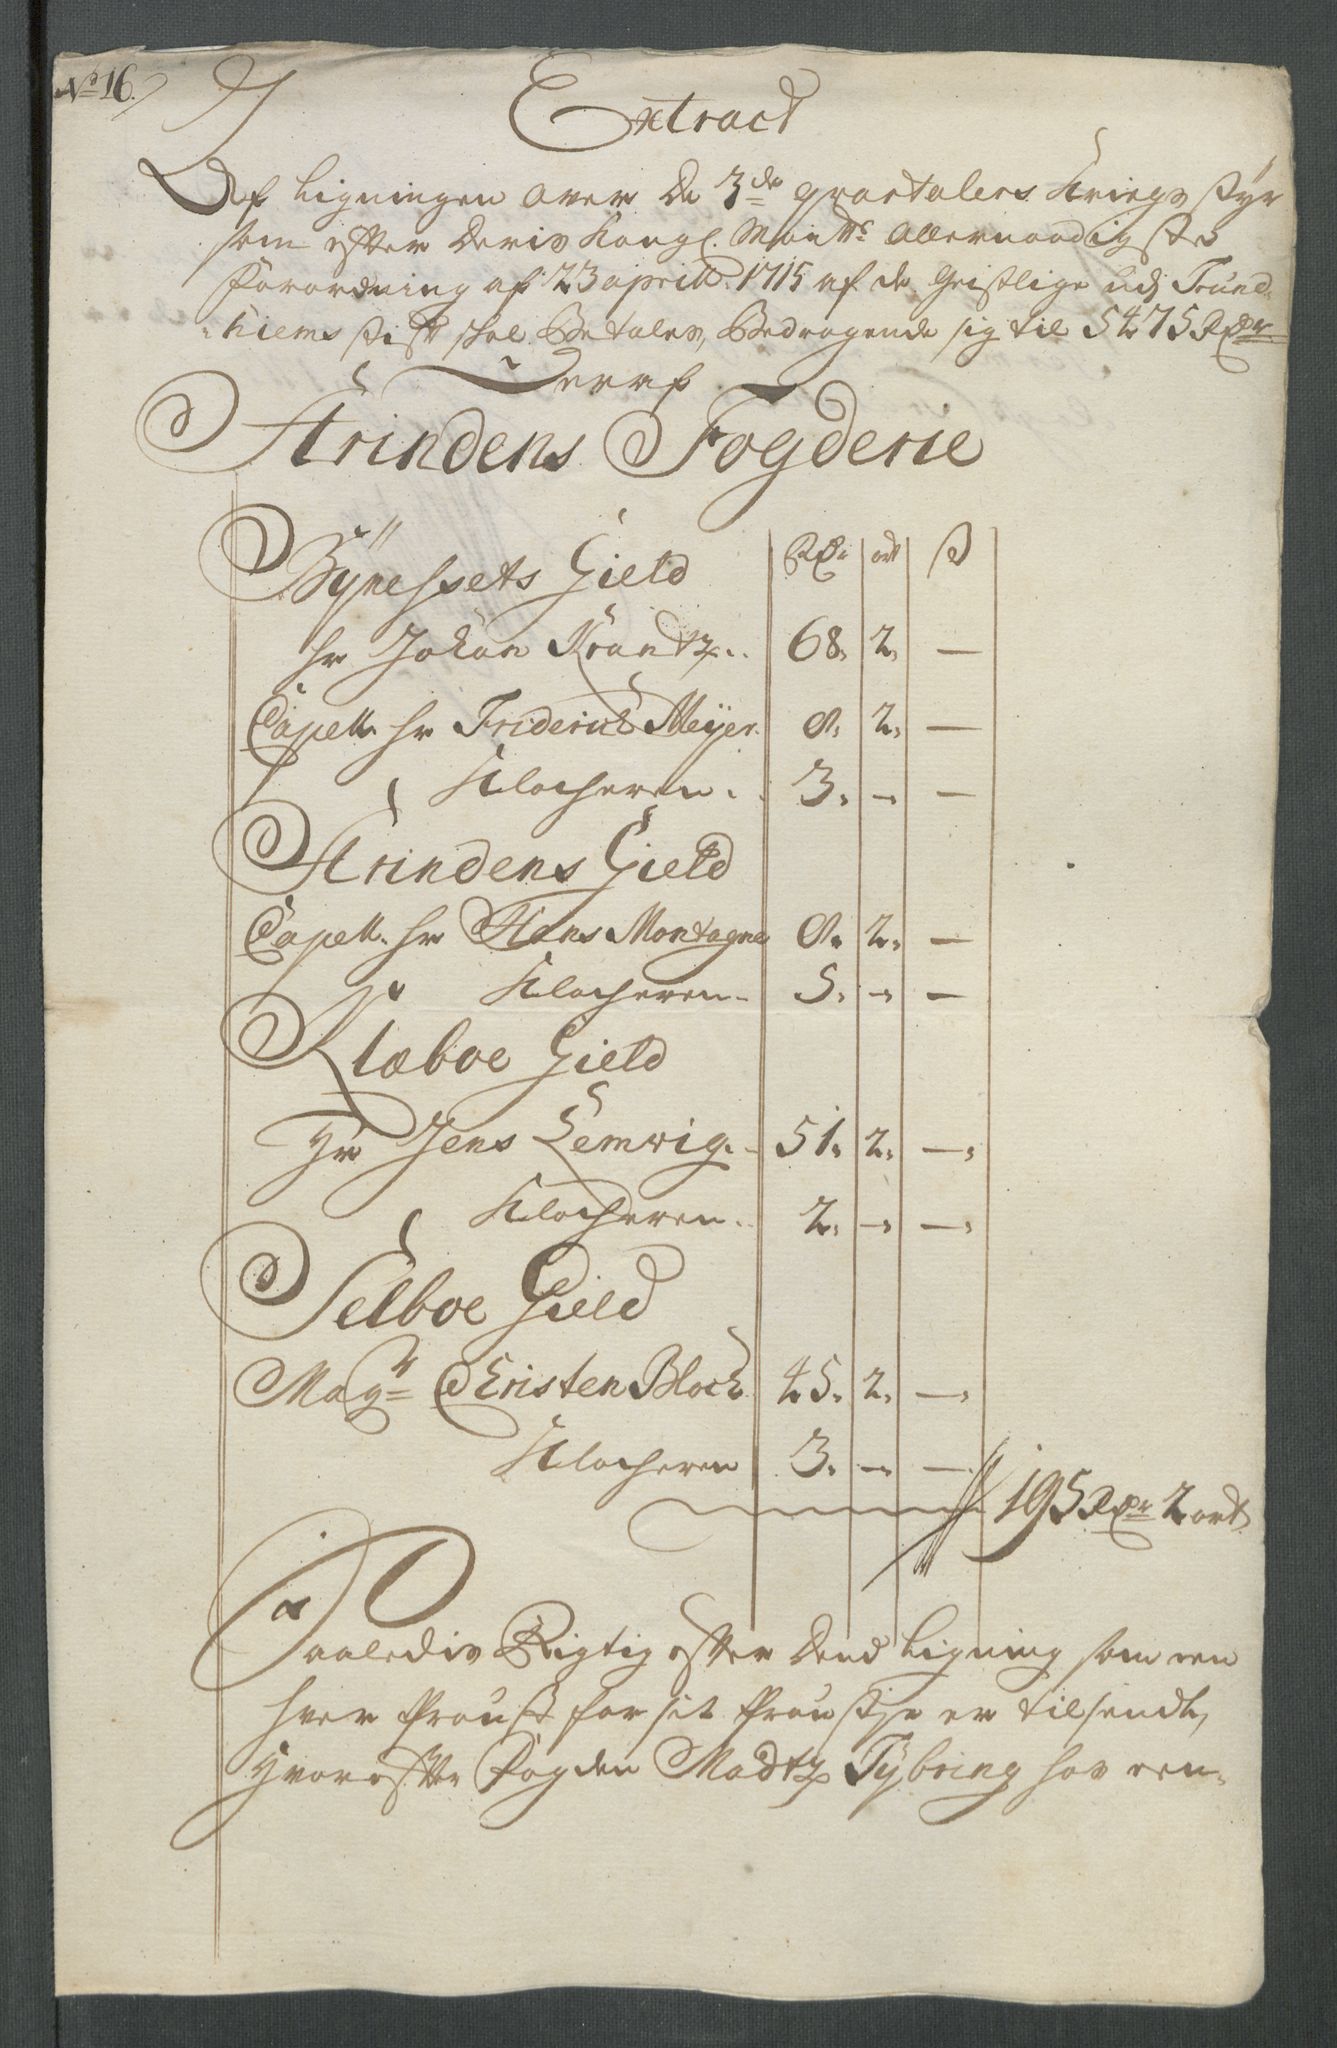 No 16.
Extract
Af Ligningen over De 3de qvartalers Kriegs Styr
som efter Deris Kongl. Maytts Allernaadigste
Forordning af 23 aprill 1715 af de Geistlige udj Trund-
hiems Stift skal Betales, Bedragende sig til 5475 Rdr
Deraf
Strindens Fogderie
Bÿnessets Gield Rdr ort ß
hr Johan Krantz.. 68. 2. —
Capell. hr Friderich Meÿer. 8. 2. —
Klocheren. 3. — —
Strindens Gield
Capell. hr Hans Montagne 8. 2. —
Klocheren. 5. — —
Klæboe Gield
Hr Jens Lemwig. 51. 2. —
Klocheren. 2. — —
Selboe Gield
Magr Christen Bloch 45. 2. —
Klocheren 3. — —
195 Rdr 2 ort
Saaledis Rigtig efter Dend Ligning som een
hver Proust for sit Proustie er tilsendt,
Hvorefter Fogden Madtz Tÿbring hos een-